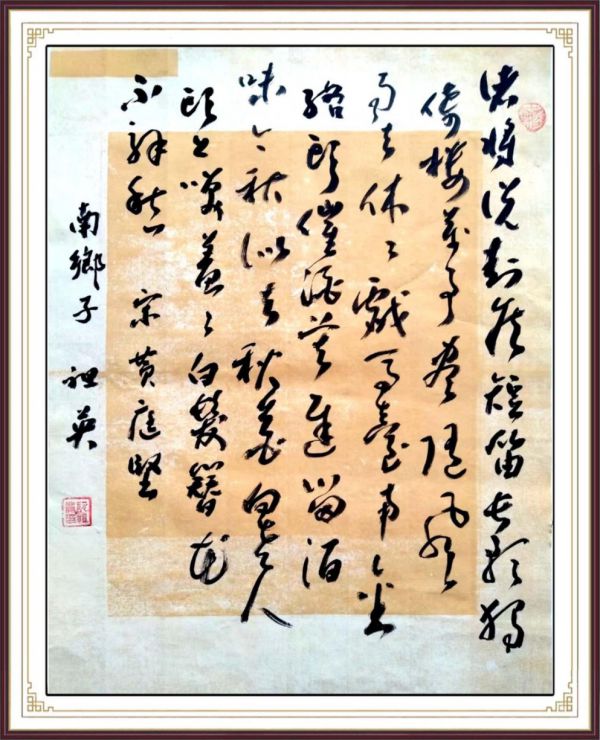 諸將說封侯短笛長歌獨
倚樓萬事盡隨風
雨去休々戲馬臺南金
絡頭催酒莫遲留酒
味今秋似去秋花向老人
頭上笑羞々白髮簪花
不解愁 宋黄庭堅
南鄉子 祖英